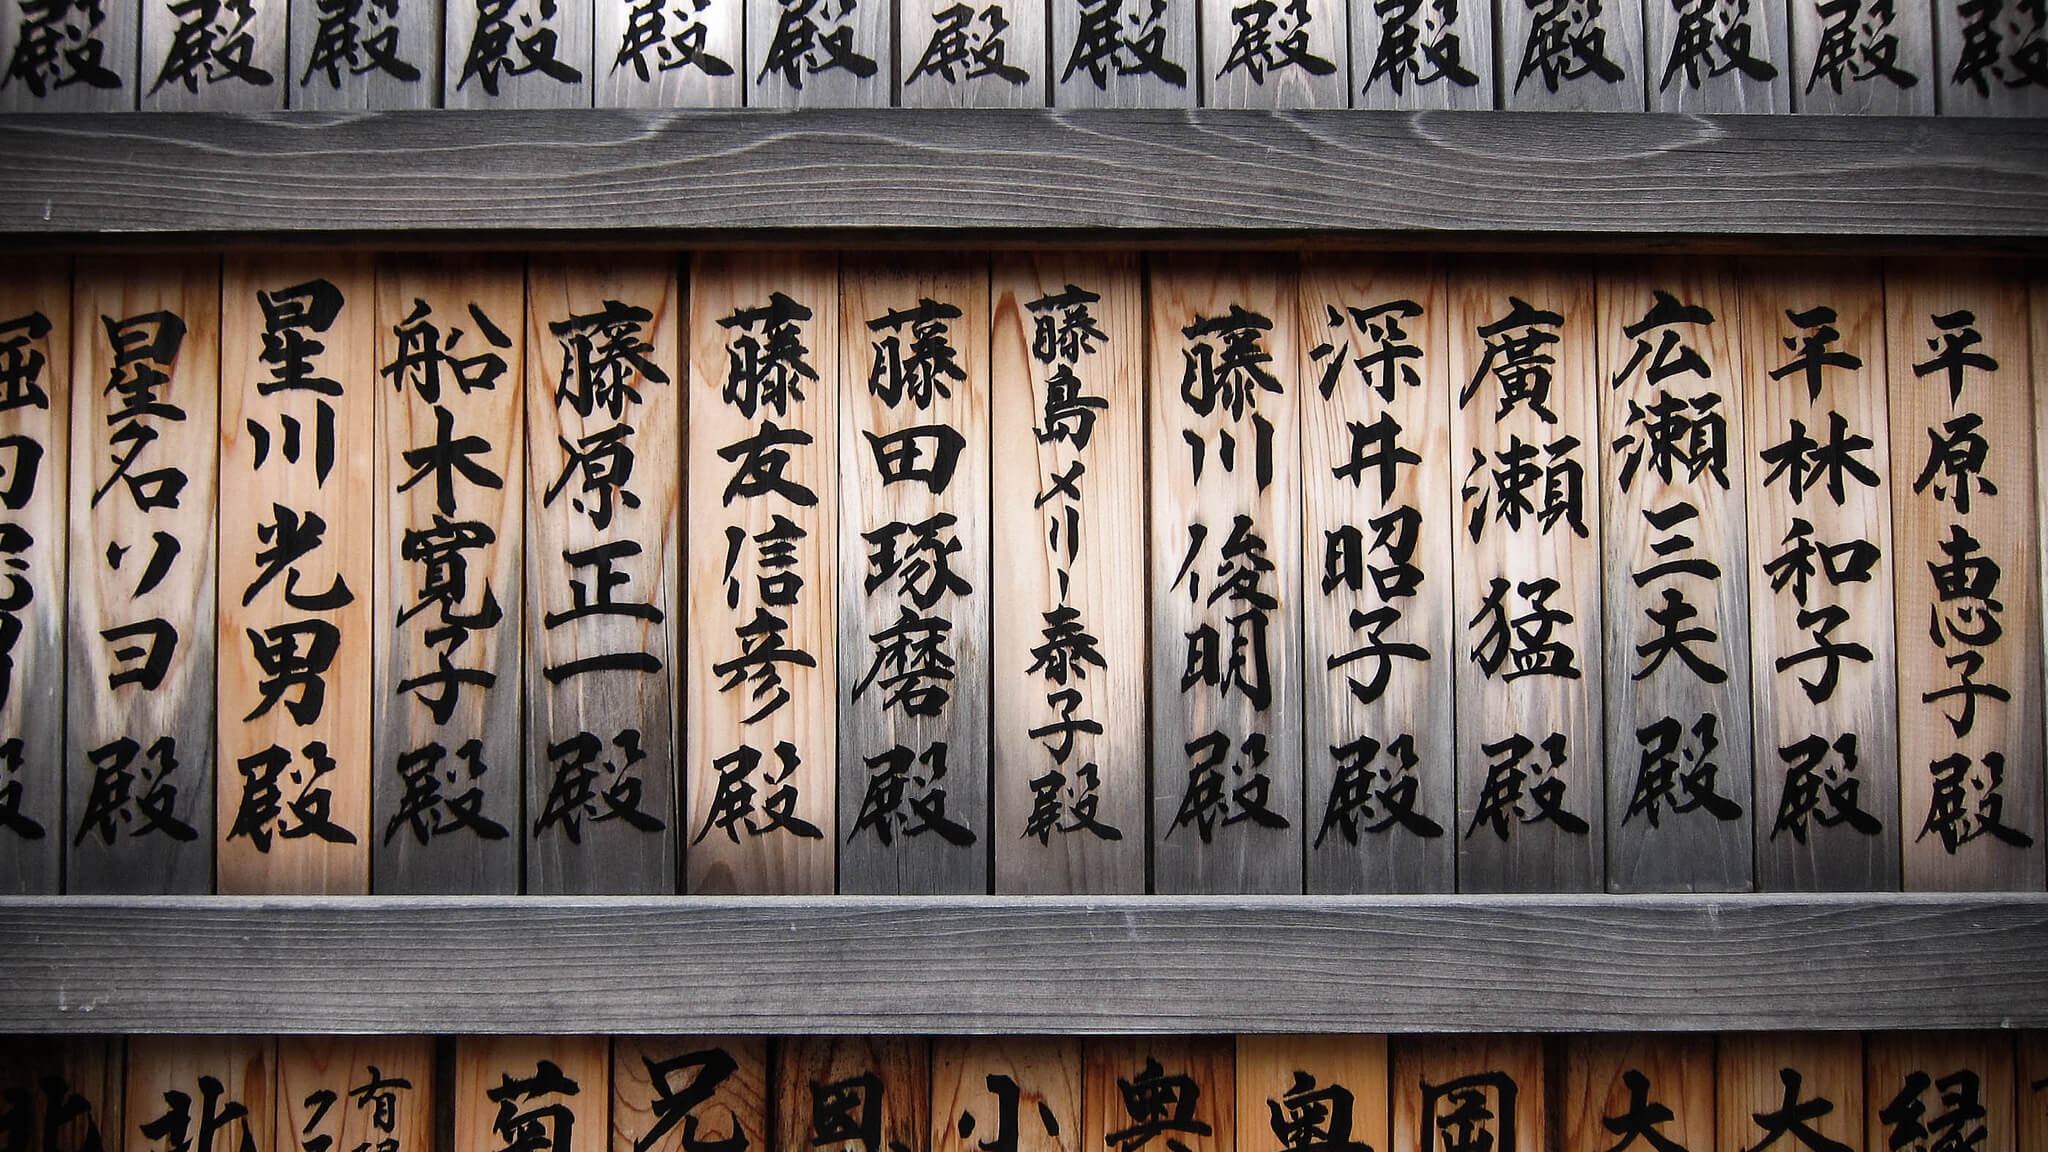 殿
殿
殿
殿
殿
殿
殿
殿
殿
殿
殿
殿
殿
殿
平原恵子殿
平林和子殿
広瀬三夫殿
廣瀬猛殿
深井昭子殿
藤川俊明殿
藤島メリー泰子殿
藤田琢磨殿
藤友信彦殿
藤原正一殿
船木寛子殿
星川光男殿
星名ソヨ殿
殿
縁
大
大
岡
奥
奥
小
兄
菊
有
北
北